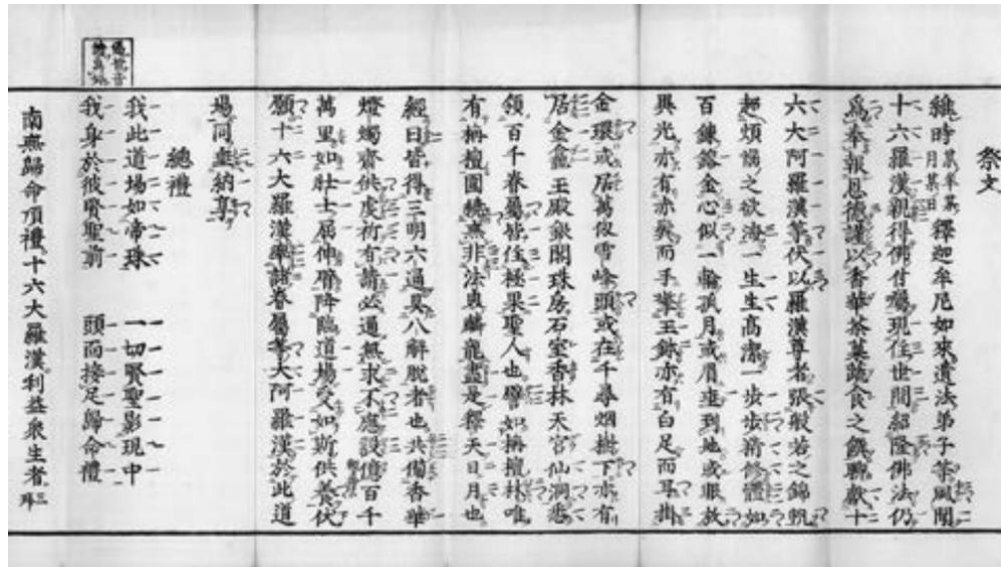 祭文
維時某年某月某日釋迦牟尼如來遺法弟子等風聞
十六羅漢親得佛付囑現住世間紹隆佛法仍
爲奉報恩德謹以香華茶菓蔬食之饌聊獻十
六大阿羅漢等伏以羅漢尊者張般若之錦帆
超煩惱之欲海一生生高潔一步步精修體如
百鍊鎔金心似一輪孤月或眉垂到地或眼放
異光亦有赤髮而手擎玉錫亦有白足而耳掛
金環或居萬仞雪峰頭或在千尋烟樹下亦有
居金玉殿銀閣珠房石室香林天宮仙洞悉
領百千眷屬皆住極果聖人也譬如栴檀林唯
有栴檀圍繞無非法麟龍盡是釋天日月也
經曰皆得三明六通具八解脫者也共備香華
燈燭齋供虔祈有請必過無求不應設億百千
萬里如壯士屈伸臂降臨道場受如斯供養伏
願十六大羅漢率諸眷屬等大阿羅漢於此道
場同垂納享
總禮
我此道場如帝珠 一切賢聖影現中
我身於彼賢聖前 頭面接足歸命禮
南無歸命頂禮十六大羅漢利益衆生者三拜